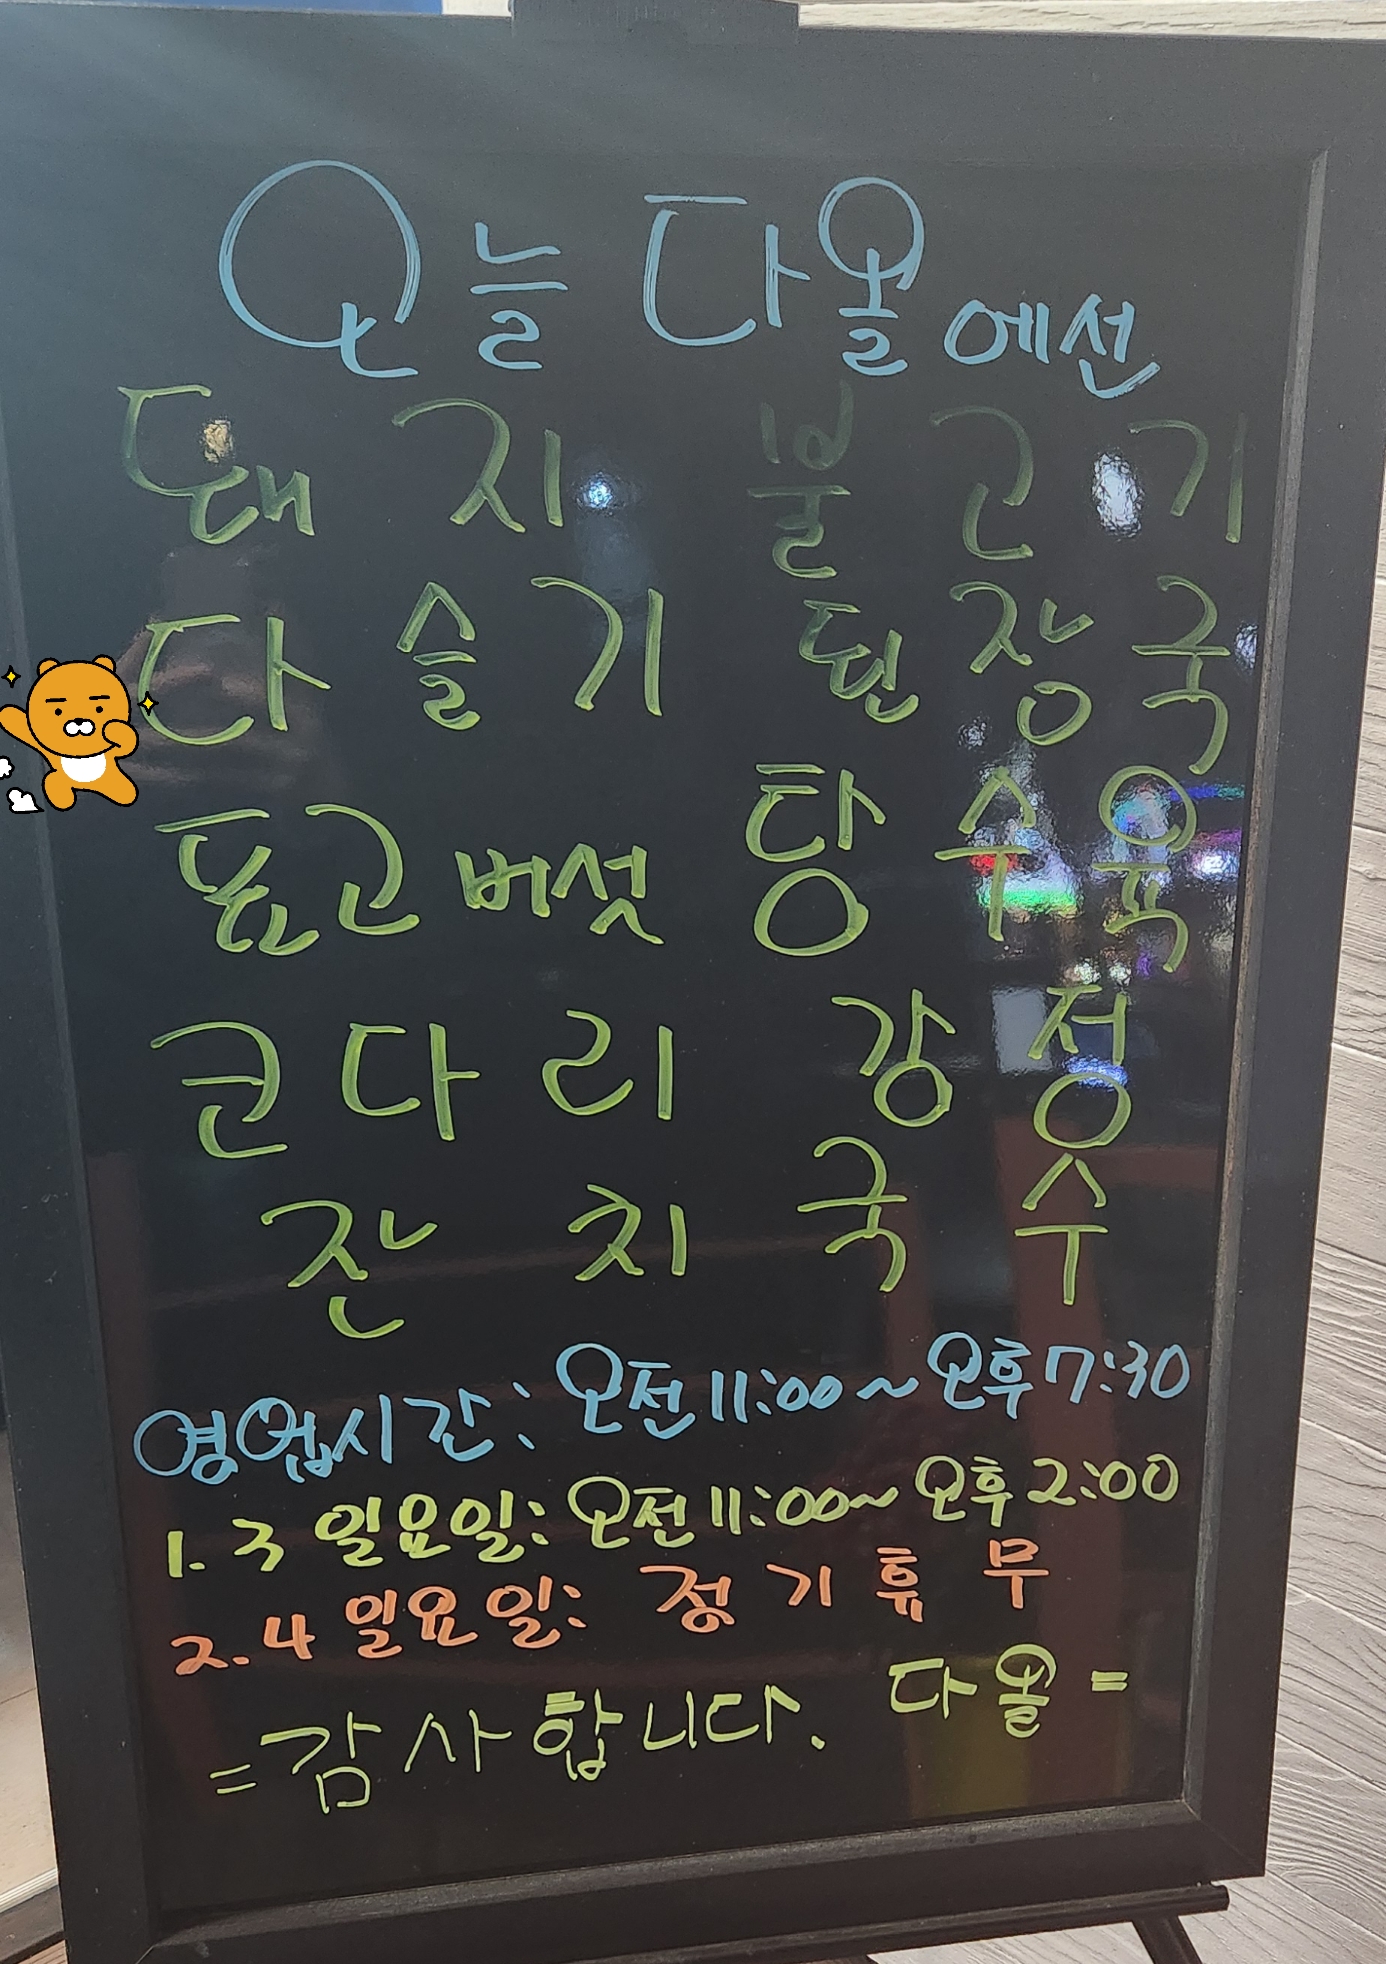 오늘 다올에선
돼지 불고기
다슬기 된장국
표고버섯 탕수육
코다리 강정
잔치국수
영업시간: 오전 11:00 ~ 오후 7:30
1.3 일요일: 오전 11:00~ 오후 2:00
2.4 일요일: 정기휴무
=감사합니다. 다올=